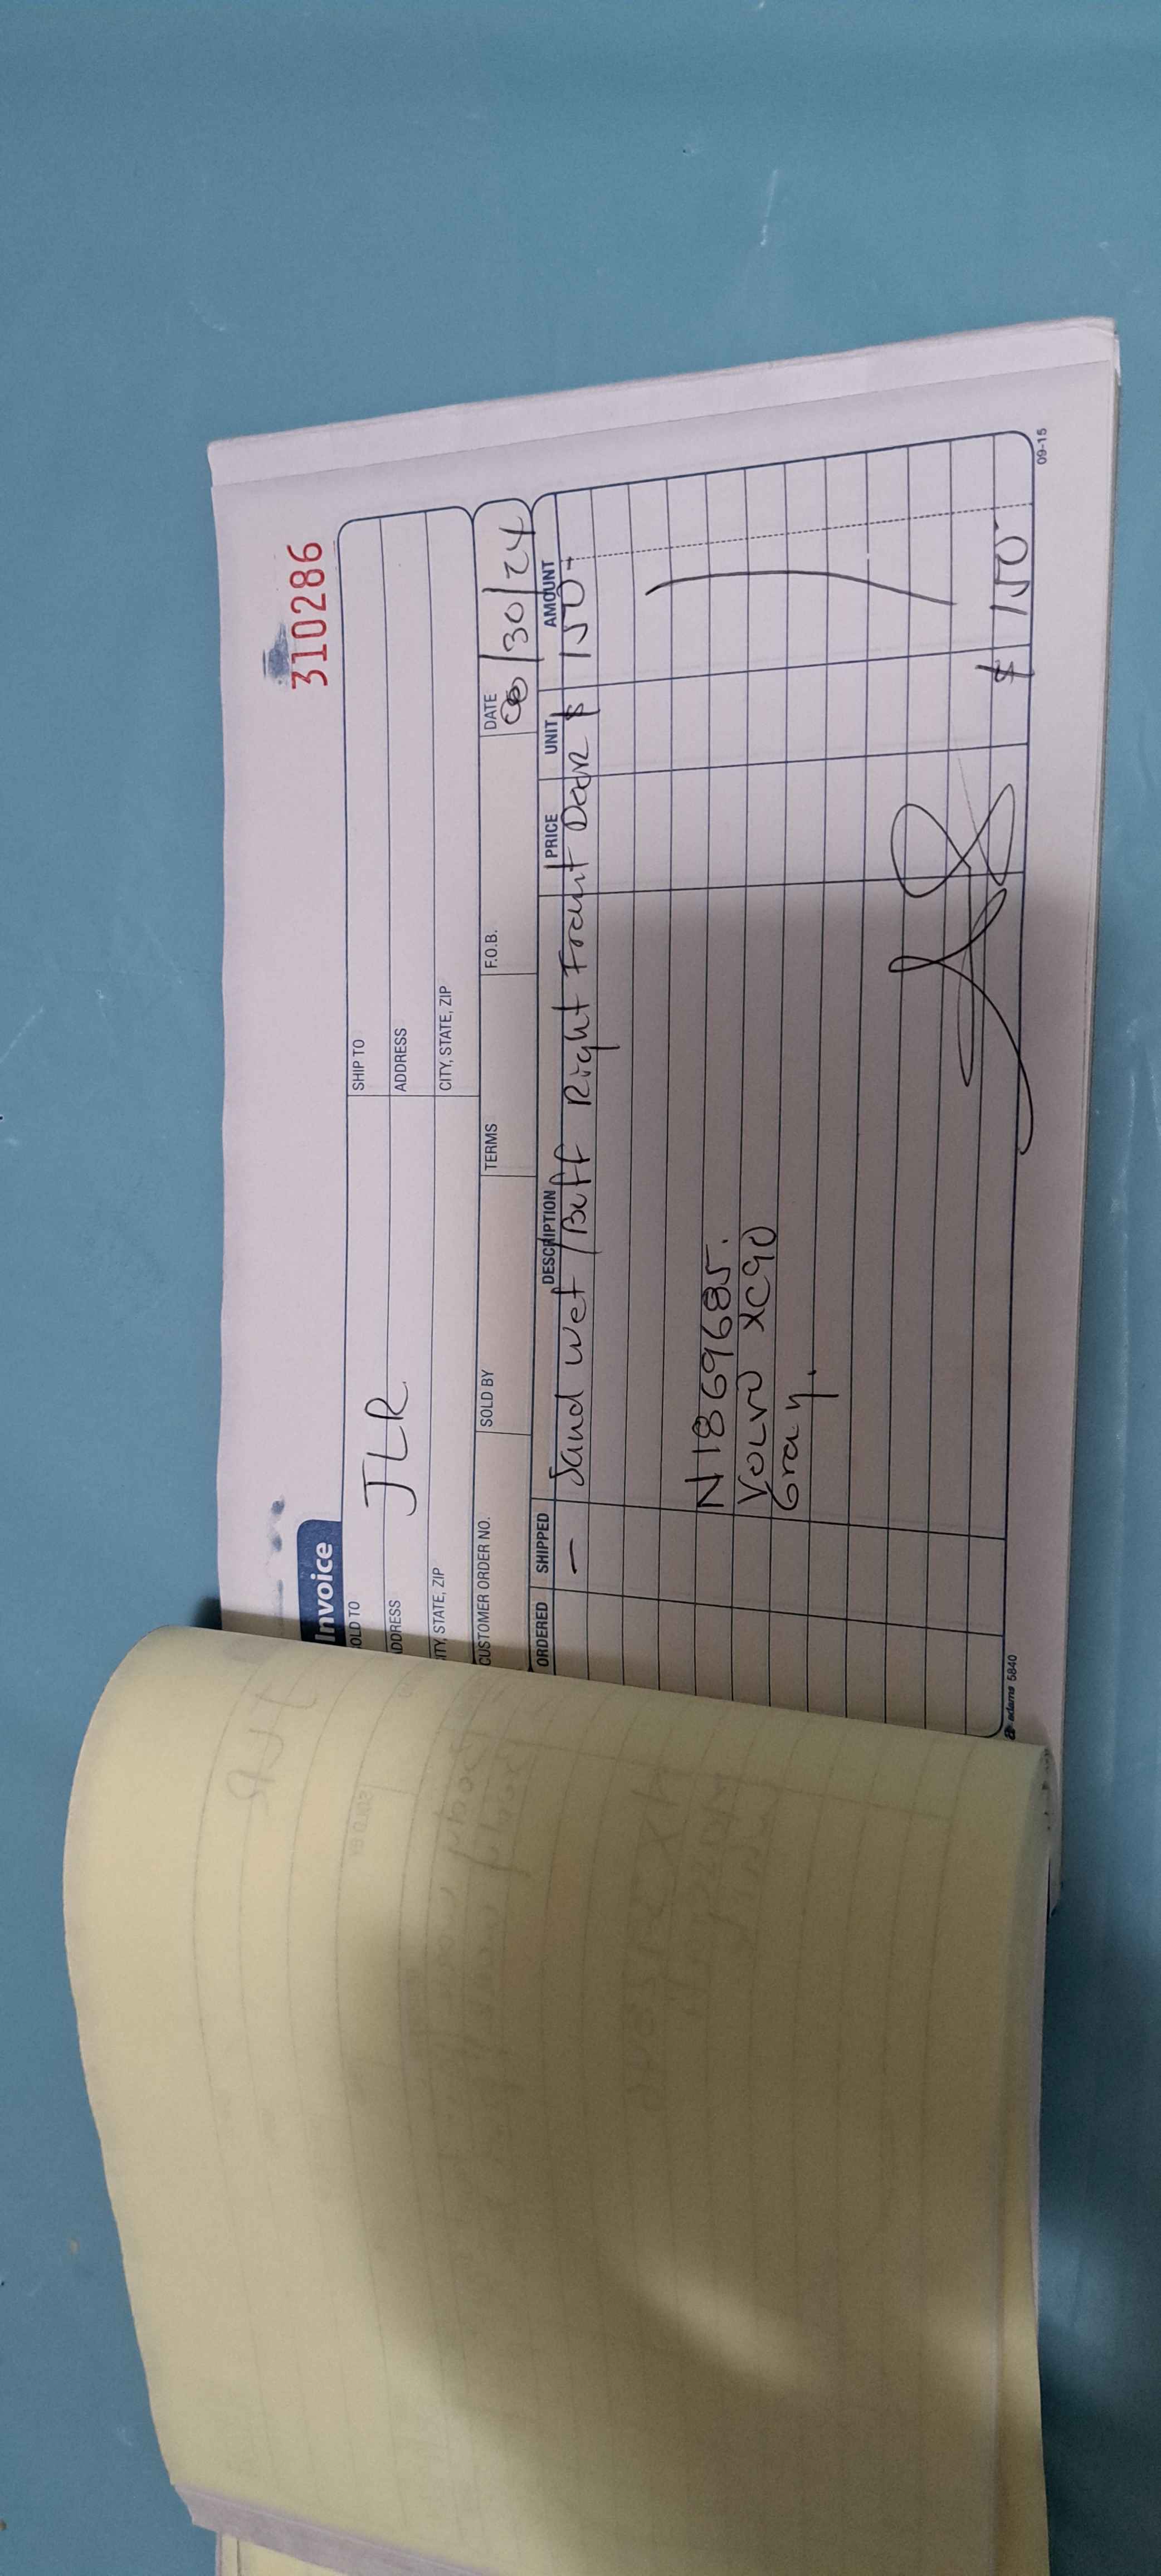 310286
Invoice
OLD TO
JLR
SHIP TO
DDRESS
ADDRESS
ITY, STATE, ZIP
CITY, STATE, ZIP
CUSTOMER ORDER NO. SOLD BY TERMS F.O.B. DATE
/30/24
ORDERED SHIPPED DESCRIPTION PRICE UNIT AMOUNT
- Sand wet / Buff Right Front Door $ 150-
N1869685.
VOLVO XC90
Gray.
$ 150-
adams 5840
09-15